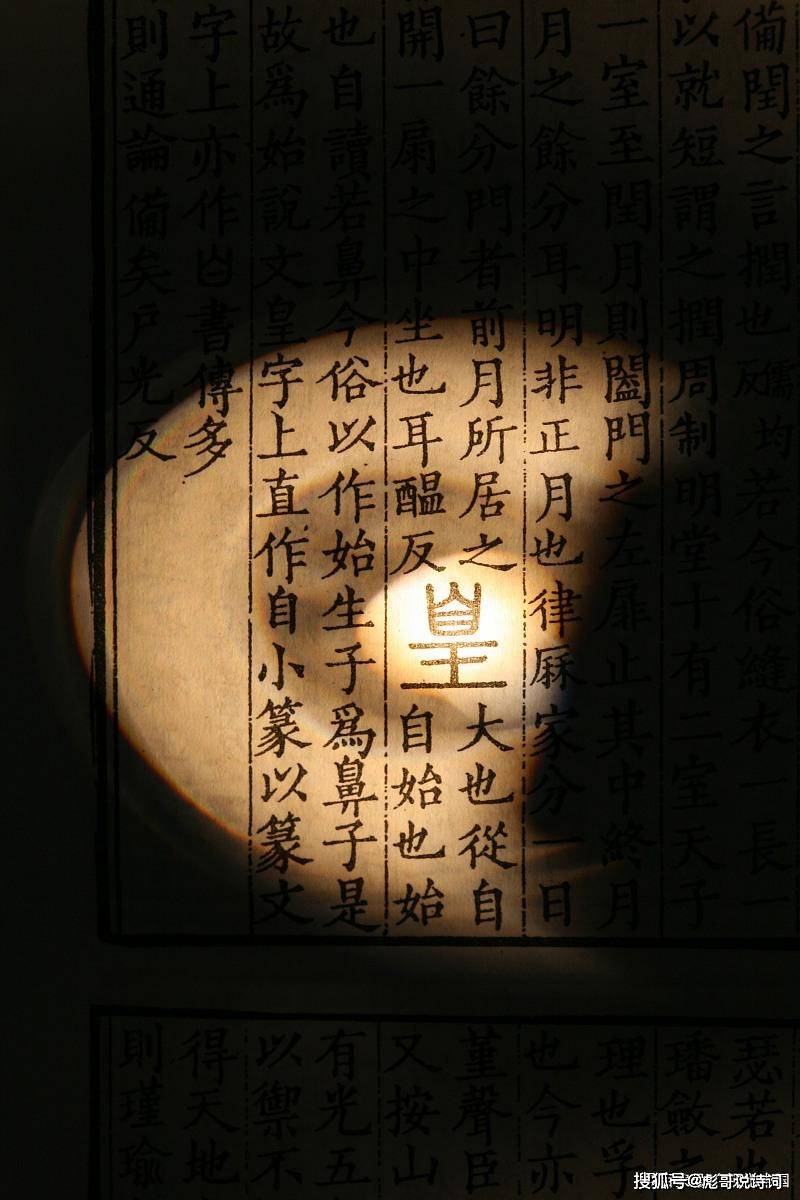 備閏之言撋也儒均反若今俗縫衣一長一
以就短謂之撋周制明堂十有二室天子
一室至閏月則闔門之左扉止其中終月
月之餘分耳明非正月也律厤家分一日
曰餘分門者前月所居之
開一扇之中坐也耳醖反
皇
大也從自
自始也始
也自讀若鼻今俗以作始生子爲鼻子是
故爲始說文皇字上直作自小篆以篆文
字上亦作𦣹書傳多
則通論備矣戶光反
瑟若
璠
理也孚
也今亦
堇聲臣
又按山
有光五
以禦不
得天地
則瑾瑜
搜狐号@彪哥说诗词